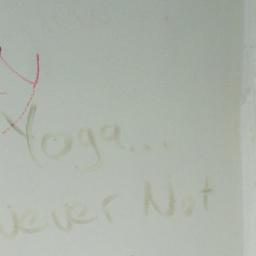 Yoga...
Never Not